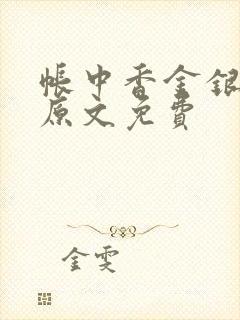 帐中香金银
原文免费
金雯